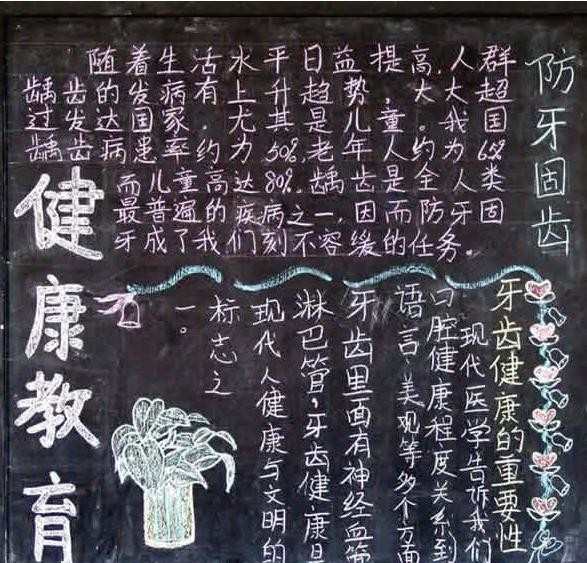 防牙固齿
随着生活水平日益提高,人群
龋齿的发病有上升趋势,大大超
过发达国家.尤其是儿童。我国
龋齿病患率约为50%,老年人约为
而儿童高达80%.龋齿是全人类
最普遍的疾病之一,因而防牙固
牙成了我们刻不容缓的任务。
健康教育
牙齿健康的重要性
现代医学告诉我们
口腔健康程度关系到
语言、美观等多个方面
牙齿里面有神经血管
淋巴管,牙齿健康是
现代人健康与文明的
标志之
一。